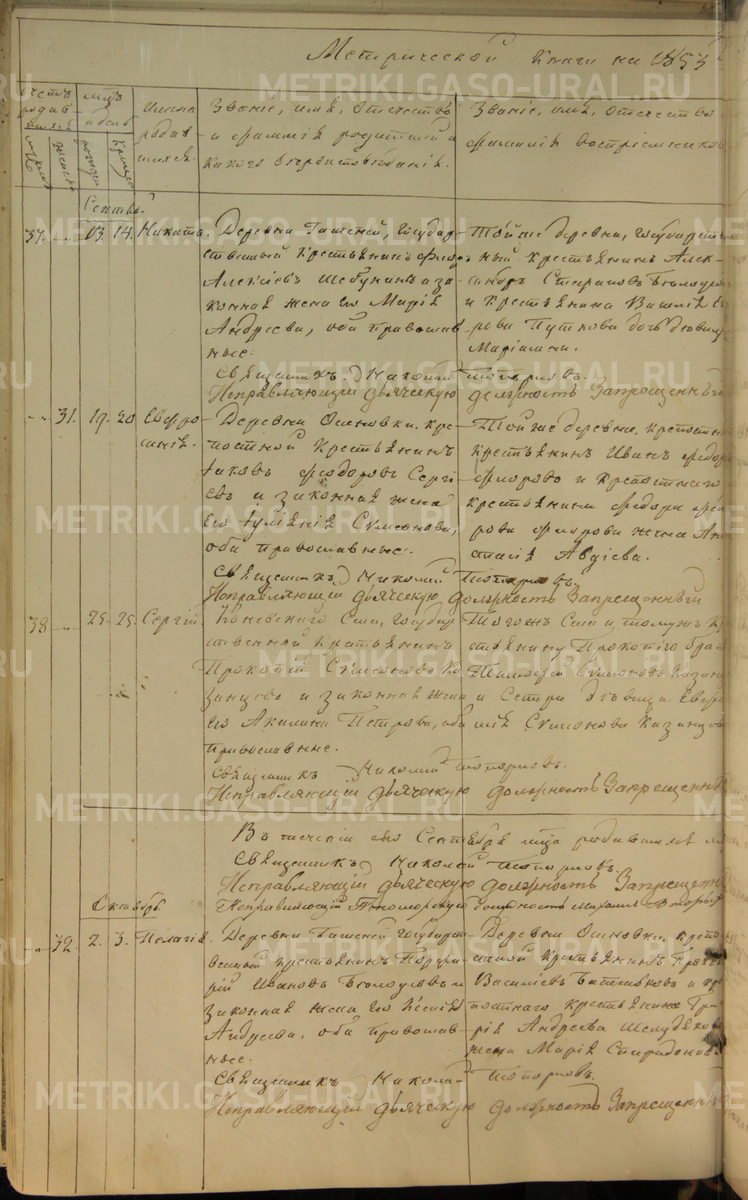 Метрической Книги на 1853
Счетъ родившихся
Мѣсяцъ
мужск.
женск.
рожден.
крещен.
Имена родившихся.
Званіе, имя, отчество
и фамилія родителей и
какого вѣроисповѣданія.
Званіе, имя, отчество
фамилія воспріемниковъ
Сентябр.
37. 13. 14. Никита.
Деревни Гашеней, Государ-
ственный Крестьянинъ
Алексѣевъ Шебунинъ и за-
конная жена его Марія
Андреева, оба православ-
ные.
Тойже деревни, Государст-
ный Крестьянинъ Алек-
сандръ Спиридоновъ
и Крестьянина Василія
рова Путкова дочь дѣвица
Маріамна.
Священникъ Николай Топорковъ.
Исправляющій дьяческую должность Запрещенный
31. 19. 20. Евфро-
синія.
Деревни Осиновки, кре-
постной Крестьянинъ
Іаковъ Феодоровъ Сергѣ-
евъ и законная жена
его Іуліанія Симеонова,
оба православные.
Тойже деревни, крепостн
Крестьянинъ Иванъ Федор
Фирово и крепостнаго
крестьянина Федора Фео-
рова Фирова жена Ана-
стасія Авдіева.
Священникъ Николай Топорковъ.
Исправляющій дьяческую должность Запрещенный
38. 25. 25. Сергій.
Коневскаго Села, Государ-
ственной Крестьянинъ
Прокопій Симеоновъ Ка-
занцовъ и законная жена
его Акилина Петрова, оба
православные.
Тогожъ Села и
стьянину Прокопію братъ
Тимофей Симеоновъ Казанц
и Сестра дѣвица Евфи-
мія Симеонова Казанцова
Священникъ Николай Топорковъ.
Исправляющій дьяческую должность Запрещенный
Въ теченіи сего Сентября м-ца родившихся
Священникъ Николай Топорковъ.
Исправляющій дьяческую должность Запрещенный
Исправляющій Пономарскую должность Михаилъ
Октябрь
32. 2. 3. Пелагія.
Деревни Гашеней Государст-
венный крестьянинъ Порфи-
рій Ивановъ Бѣлоусовъ и
законная жена его Ксенія
Андреева, оба православ-
ные.
Деревни Осиновки, крепо-
стной Крестьянинъ
Василіевъ и кре-
постнаго крестьянина Гри-
рія Андреева
жена Марія Спиридонова
Священникъ Николай Топорковъ.
Исправляющій дьяческую должность Запрещенный
METRIKI.GASO-URAL.RU